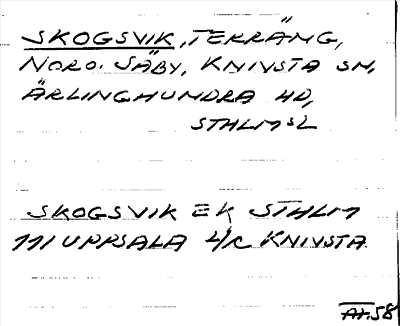 SKOGSVIK, TERRÄNG,
NORD. SÄBY, KNIVSTA SN,
ÄRLINGHUNDRA HD,
STHLMS L
SKOGSVIK EK STHLM
111 UPPSALA 4/C KNIVSTA
58